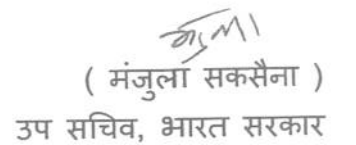 ( मंजुला सकसैना )
उप सचिव, भारत सरकार